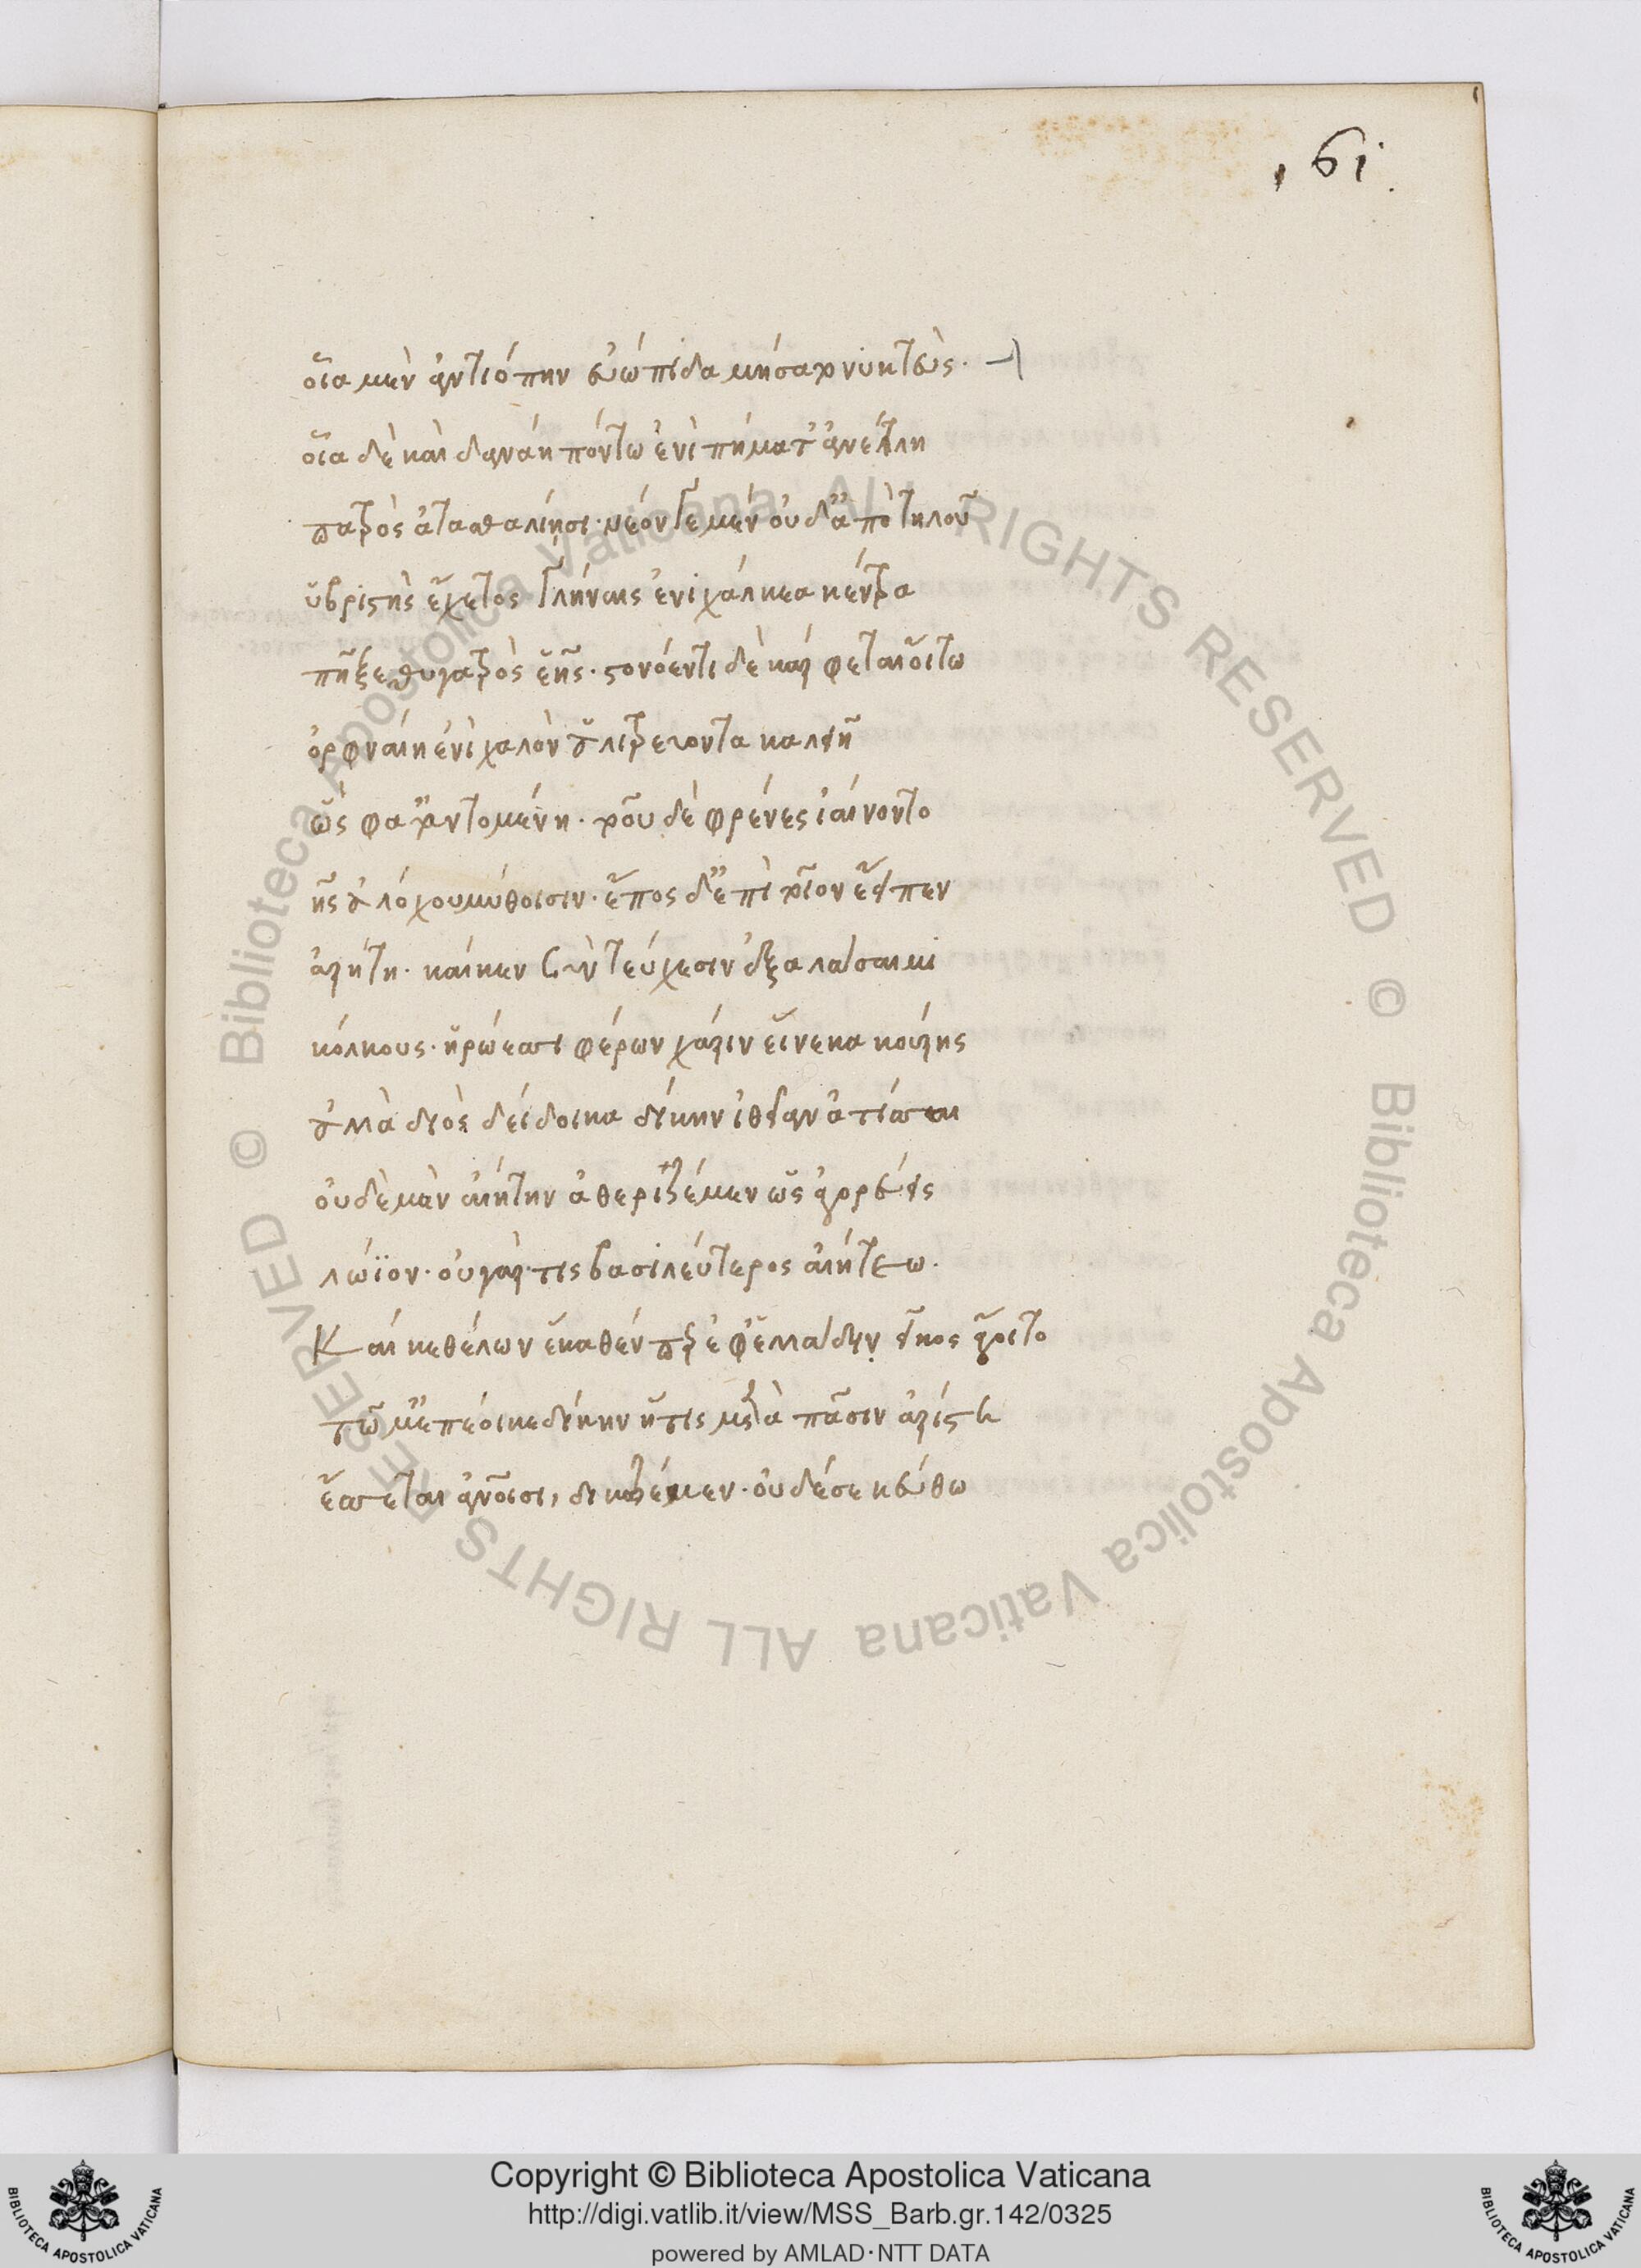 161.
οἷα μὲν ἀντιόπην εὐώπιδα μήσατο νυκτεὺς·
οἷα δὲ καὶ δανάη πόντω ἐνὶ πήματ' ἀνέτλη
πατρὸς ἀτασθαλίησι· νεόν γε μὲν οὐδ' ἄπο τηλοῦ
ὑβριστὴς ἔχετος γλήναις ἐνὶ χάλκεα κέντρα
πῆξε θυγατρὸς ἑῆς· στονόεντι δὲ κάρφεται οἴτω
ὀρφναίη ἐνὶ χαλκὸν ἀλετρεύουσα καλιῆ
ὣς φατ' ἀντομένη· τοῦ δὲ φρένες ἰαίνοντο
ἧς ἀλόχου μύθοισιν· ἔπος δ' ἐπὶ τοῖον ἔειπεν
ἀρήτη· καί κεν σὺν τεύχεσιν ἐξαλάσαιμι
κόλχους· ἡρώεσσι φέρων χάριν εἵνεκα κούρης
ἀλλὰ διὸς δείδοικα δίκην ἰθεῖαν ἀτίσσαι
οὐδὲ μὲν αἰήτην ἀθεριζέμεν ὡς ἀγορεύεις
λώϊον· οὐ γάρ τις βασιλεύτερος αἰήτεω.
Καί κε θέλων ἕκαθέν περ ἐφ' ἑλλάδι νεῖκος ἄγοιτο
τῶ μ' ἐπέοικε δίκην ἥτις μετὰ πᾶσιν ἀρίστη
ἔσσεται ἀνθρώποισι, δικαζέμεν· οὐδέ σε κεύθω
Copyright © Biblioteca Apostolica Vaticana
http://digi.vatlib.it/view/MSS_Barb.gr.142/0325
powered by AMLAD·NTT DATA
BIBLIOTECA APOSTOLICA VATICANA
BIBLIOTECA APOSTOLICA VATICANA
© Biblioteca Apostolica Vaticana ALL RIGHTS RESERVED © Biblioteca Apostolica Vaticana ALL RIGHTS RESERVED